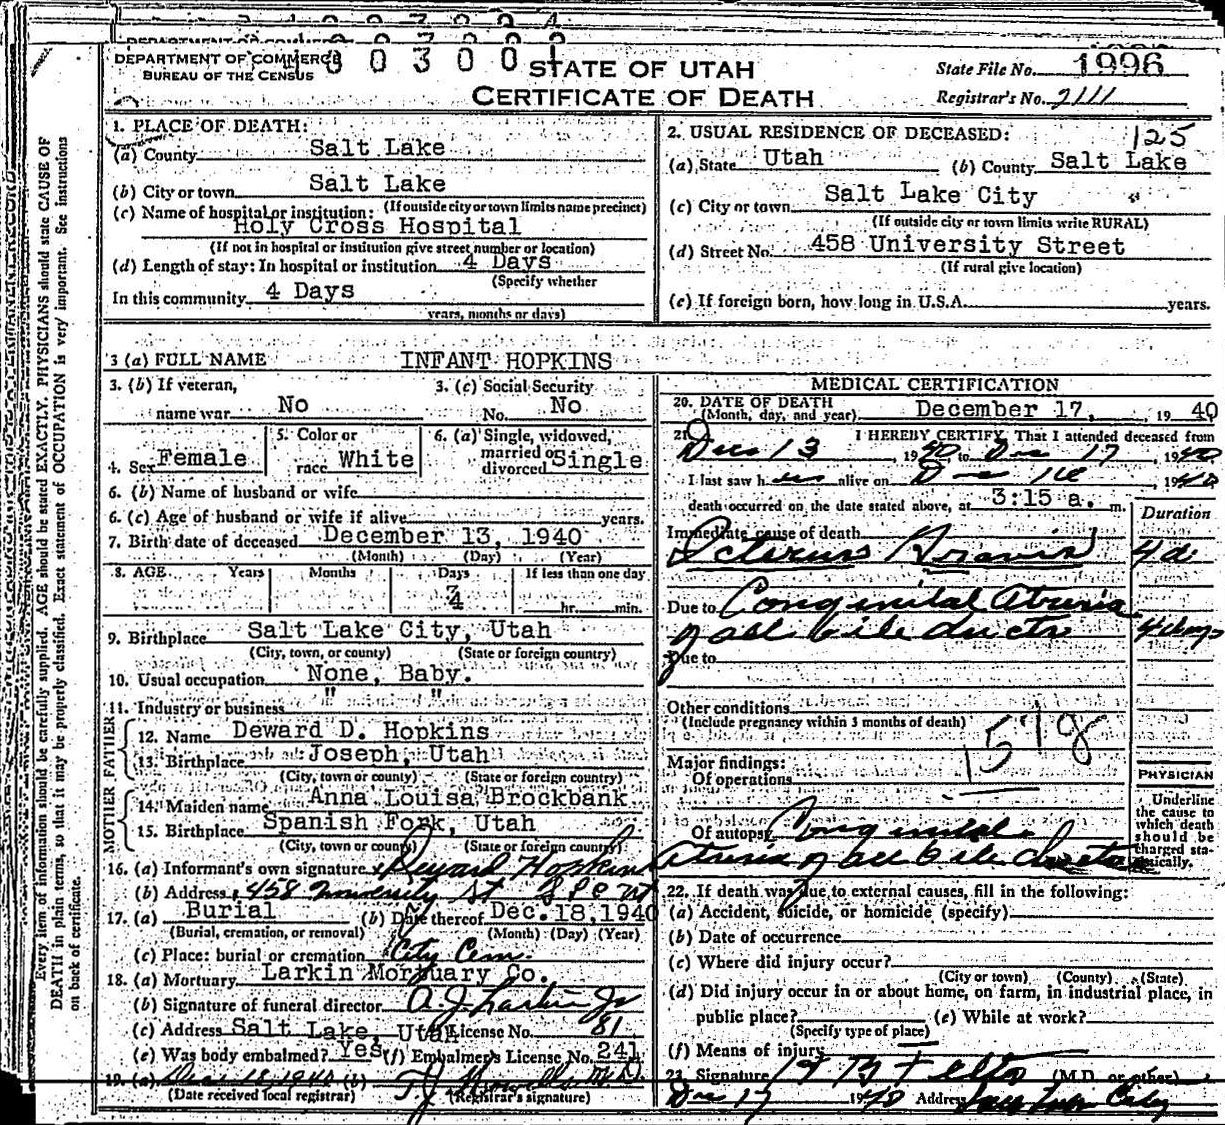 DEPARTMENT OF COMMERCE
BUREAU OF THE CENSUS
STATE OF UTAH
CERTIFICATE OF DEATH
State File No. 1996
Registrar's No. 2111
Every item of information should be carefully supplied. AGE should be stated EXACTLY. PHYSICIANS should state CAUSE OF
DEATH in plain terms, so that it may be properly classified. Exact statement of OCCUPATION is very important. See instructions
on back of certificate.
1. PLACE OF DEATH:
(a) County Salt Lake
(b) City or town Salt Lake
(If outside city or town limits name precinct)
(c) Name of hospital or institution:
Holy Cross Hospital
(If not in hospital or institution give street number or location)
(d) Length of stay: In hospital or institution 4 Days
(Specify whether
In this community 4 Days
years, months or days)
2. USUAL RESIDENCE OF DECEASED: 125
(a) State Utah (b) County Salt Lake
(c) City or town Salt Lake City
(If outside city or town limits write RURAL)
(d) Street No. 458 University Street
(If rural give location)
(e) If foreign born, how long in U.S.A. years.
3 (a) FULL NAME INFANT HOPKINS
3. (b) If veteran, name war No
3. (c) Social Security No. No
4. Sex Female
5. Color or race White
6. (a) Single, widowed, married or divorced Single
6. (b) Name of husband or wife
6. (c) Age of husband or wife if alive years.
7. Birth date of deceased December 13, 1940
(Month) (Day) (Year)
8. AGE Years Months Days If less than one day
4 hr. min.
9. Birthplace Salt Lake City, Utah
(City, town, or county) (State or foreign country)
10. Usual occupation None, Baby.
11. Industry or business " "
FATHER
12. Name Deward D. Hopkins
13. Birthplace Joseph, Utah
(City, town or county) (State or foreign country)
MOTHER
14. Maiden name Anna Louisa Brockbank
15. Birthplace Spanish Fork, Utah
(City, town or county) (State or foreign country)
16. (a) Informant's own signature Deward Hopkins
(b) Address 458 University St S L C Ut
17. (a) Burial (b) Date thereof Dec. 18, 1940
(Burial, cremation, or removal) (Month) (Day) (Year)
(c) Place: burial or cremation City Cem.
18. (a) Mortuary Larkin Mortuary Co.
(b) Signature of funeral director A. J. Larkin Jr
(c) Address Salt Lake, Utah License No. 81
(e) Was body embalmed? Yes (f) Embalmer's License No. 241
19. (a) Dec 18, 1940 (b) M.D.
(Date received local registrar) (Registrar's signature)
MEDICAL CERTIFICATION
20. DATE OF DEATH
(Month, day, and year) December 17, 1940
21. I HEREBY CERTIFY, That I attended deceased from
Dec 13, 1940 to Dec 17, 1940
I last saw her alive on Dec 1940
death occurred on the date stated above, at 3:15 a. m.
Duration
Immediate cause of death
Icterus Gravis 4 d.
Due to Congenital Atresia
of all bile ducts 4 days
Due to
Other conditions
(Include pregnancy within 3 months of death)
Major findings:
Of operations
Of autopsy Congenital
Atresia of all bile ducts
PHYSICIAN
Underline the cause to which death should be charged statistically.
22. If death was due to external causes, fill in the following:
(a) Accident, suicide, or homicide (specify)
(b) Date of occurrence
(c) Where did injury occur?
(City or town) (County) (State)
(d) Did injury occur in or about home, on farm, in industrial place, in
public place? (e) While at work?
(Specify type of place)
(f) Means of injury
23. Signature (M.D. or other)
Dec 17 1940 Address Salt Lake City